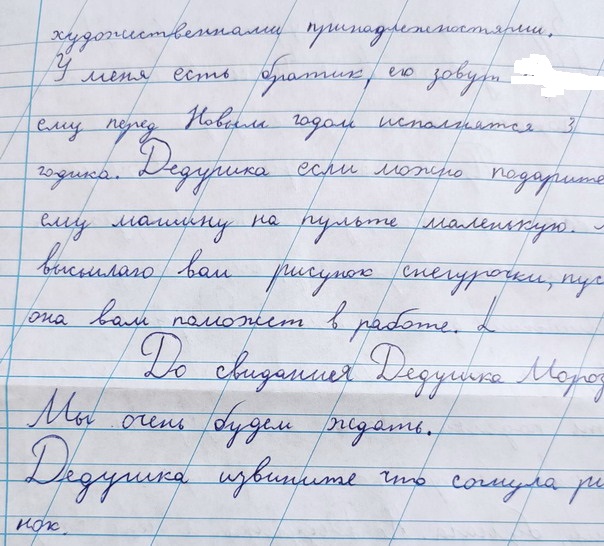 художественнами принадлежностями.
У меня есть братик, его зовут
ему перед Новым годом исполнятся 3
годика. Дедушка если можно подарите
ему машину на пульте маленькую.
высылаю вам рисунок снегурочки, пус
она вам поможет в работе.
До свидания Дедушка Мороз
Мы очень будем ждать.
Дедушка извините что согнула ри
нок.